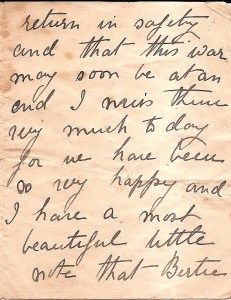 return in safety
and that this war
may soon be at an
end I miss them
very much to day
for we have been
so very happy and
I have a most
beautiful little
note that Bertie